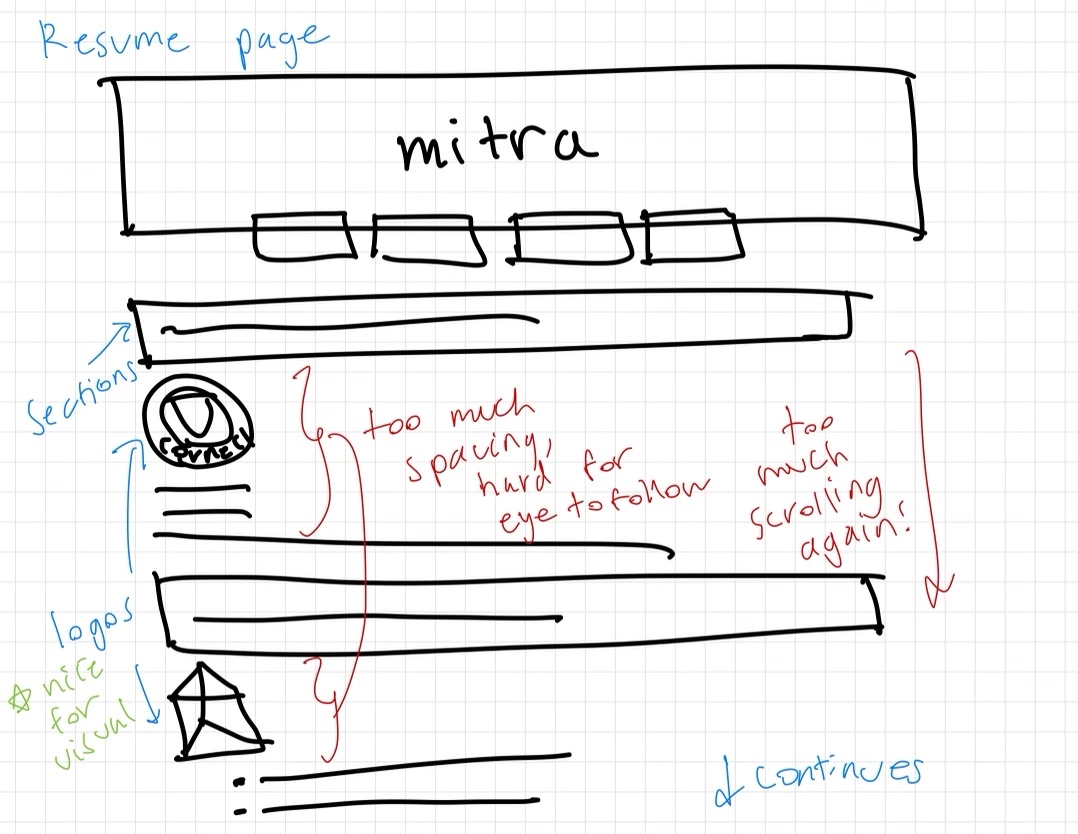 Resume page
mitra
Sections
too much
spacing,
hard for
eye to follow
too
much
scrolling
again!
logos
☆ nice
for
visual
↓ continues